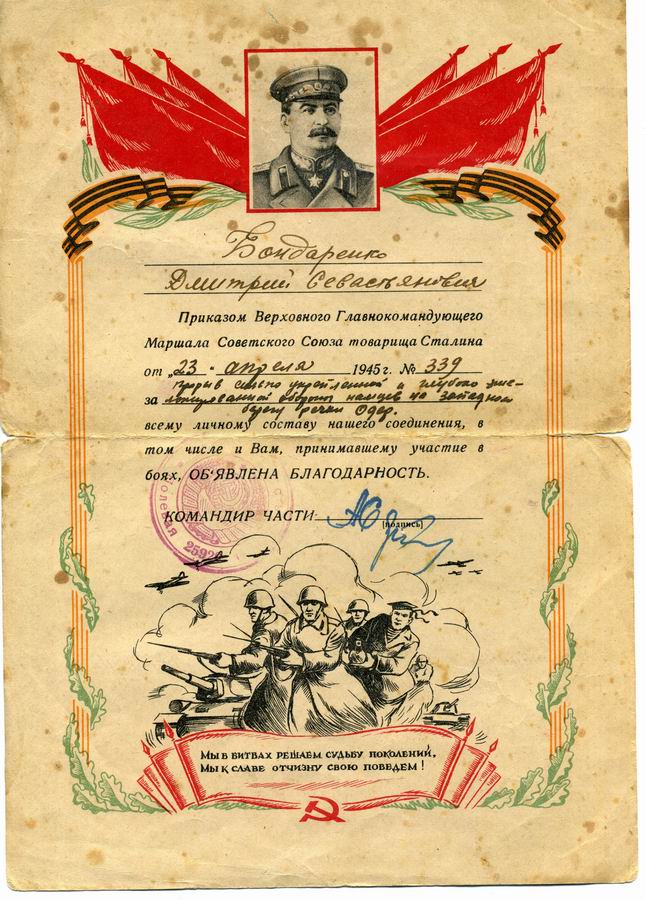 Бондаренко
Дмитрий Севастьянович
Приказом Верховного Главнокомандующего
Маршала Советского Союза товарища Сталина
от „23" апреля 1945 г. № 339
прорыв сильно укрепленной и глубоко эше-
за лонированной обороны немцев на западном
берегу речки Одер.
всему личному составу нашего соединения, в
том числе и Вам, принимавшему участие в
боях, ОБ'ЯВЛЕНА БЛАГОДАРНОСТЬ.
КОМАНДИР ЧАСТИ
(подпись)
Полевая
МЫ В БИТВАХ РЕШАЕМ СУДЬБУ ПОКОЛЕНИЙ,
МЫ К СЛАВЕ ОТЧИЗНУ СВОЮ ПОВЕДЕМ!